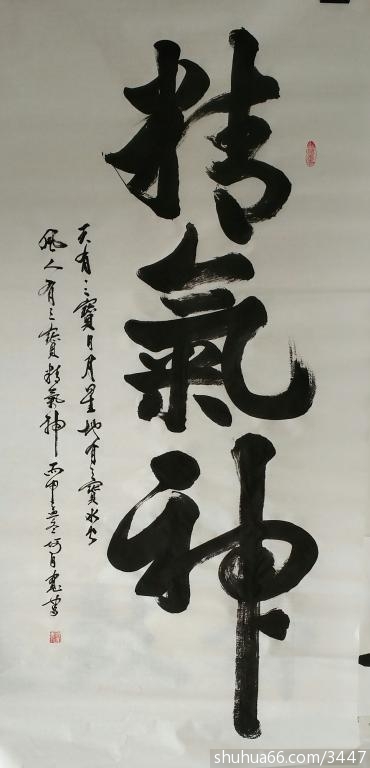 精氣神
天有三寶日月星地有三寶水火
風人有三寶精氣神丙申
shuhua66.com/3447